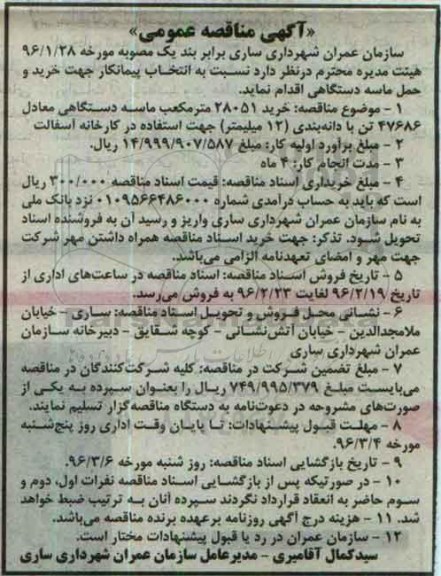 «آگهی مناقصه عمومی»
سازمان عمران شهرداری ساری برابر بند یک مصوبه مورخه ۹۶/۱/۲۸
هیئت مدیره محترم درنظر دارد نسبت به انتخاب پیمانکار جهت خرید و
حمل ماسه دستگاهی اقدام نماید.
۱ - موضوع مناقصه: خرید ۲۸۰۵۱ مترمکعب ماسه دستگاهی معادل
۴۷۶۸۶ تن با دانه‌بندی (۱۲ میلیمتر) جهت استفاده در کارخانه آسفالت
۲ - مبلغ برآورد اولیه کار: مبلغ ۱۴/۹۹۹/۹۰۷/۵۸۷ ریال.
۳ - مدت انجام کار: ۴ ماه
۴ - مبلغ خریداری اسناد مناقصه: قیمت اسناد مناقصه ۳۰۰/۰۰۰ ریال
است که باید به حساب درآمدی شماره ۰۱۰۹۵۶۶۴۸۶۰۰۰ نزد بانک ملی
به نام سازمان عمران شهرداری ساری واریز و رسید آن به فروشنده اسناد
تحویل شود. تذکر: جهت خرید اسناد مناقصه همراه داشتن مهر شرکت
جهت مهر و امضای تعهدنامه الزامی می‌باشد.
۵ - تاریخ فروش اسناد مناقصه: اسناد مناقصه در ساعت‌های اداری از
تاریخ ۹۶/۲/۱۹ لغایت ۹۶/۲/۲۳ به فروش می‌رسد.
۶ - نشانی محل فروش و تحویل اسناد مناقصه: ساری - خیابان
ملامجدالدین - خیابان آتش‌نشانی - کوچه شقایق - دبیرخانه سازمان
عمران شهرداری ساری
۷ - مبلغ تضمین شرکت در مناقصه: کلیه شرکت‌کنندگان در مناقصه
می‌بایست مبلغ ۷۴۹/۹۹۵/۳۷۹ ریال را بعنوان سپرده به یکی از
صورت‌های مشروحه در دعوت‌نامه به دستگاه مناقصه‌گزار تسلیم نمایند.
۸ - مهلت قبول پیشنهادات: تا پایان وقت اداری روز پنج‌شنبه
مورخه ۹۶/۳/۴.
۹ - تاریخ بازگشایی اسناد مناقصه: روز شنبه مورخه ۹۶/۳/۶.
۱۰ - در صورتیکه پس از بازگشایی اسناد مناقصه نفرات اول، دوم و
سوم حاضر به انعقاد قرارداد نگردند سپرده آنان به ترتیب ضبط خواهد
شد. ۱۱ - هزینه درج آگهی روزنامه برعهده برنده مناقصه می‌باشد.
۱۲ - سازمان عمران در رد یا قبول پیشنهادات مختار است.
سیدکمال آقامیری - مدیرعامل سازمان عمران شهرداری ساری